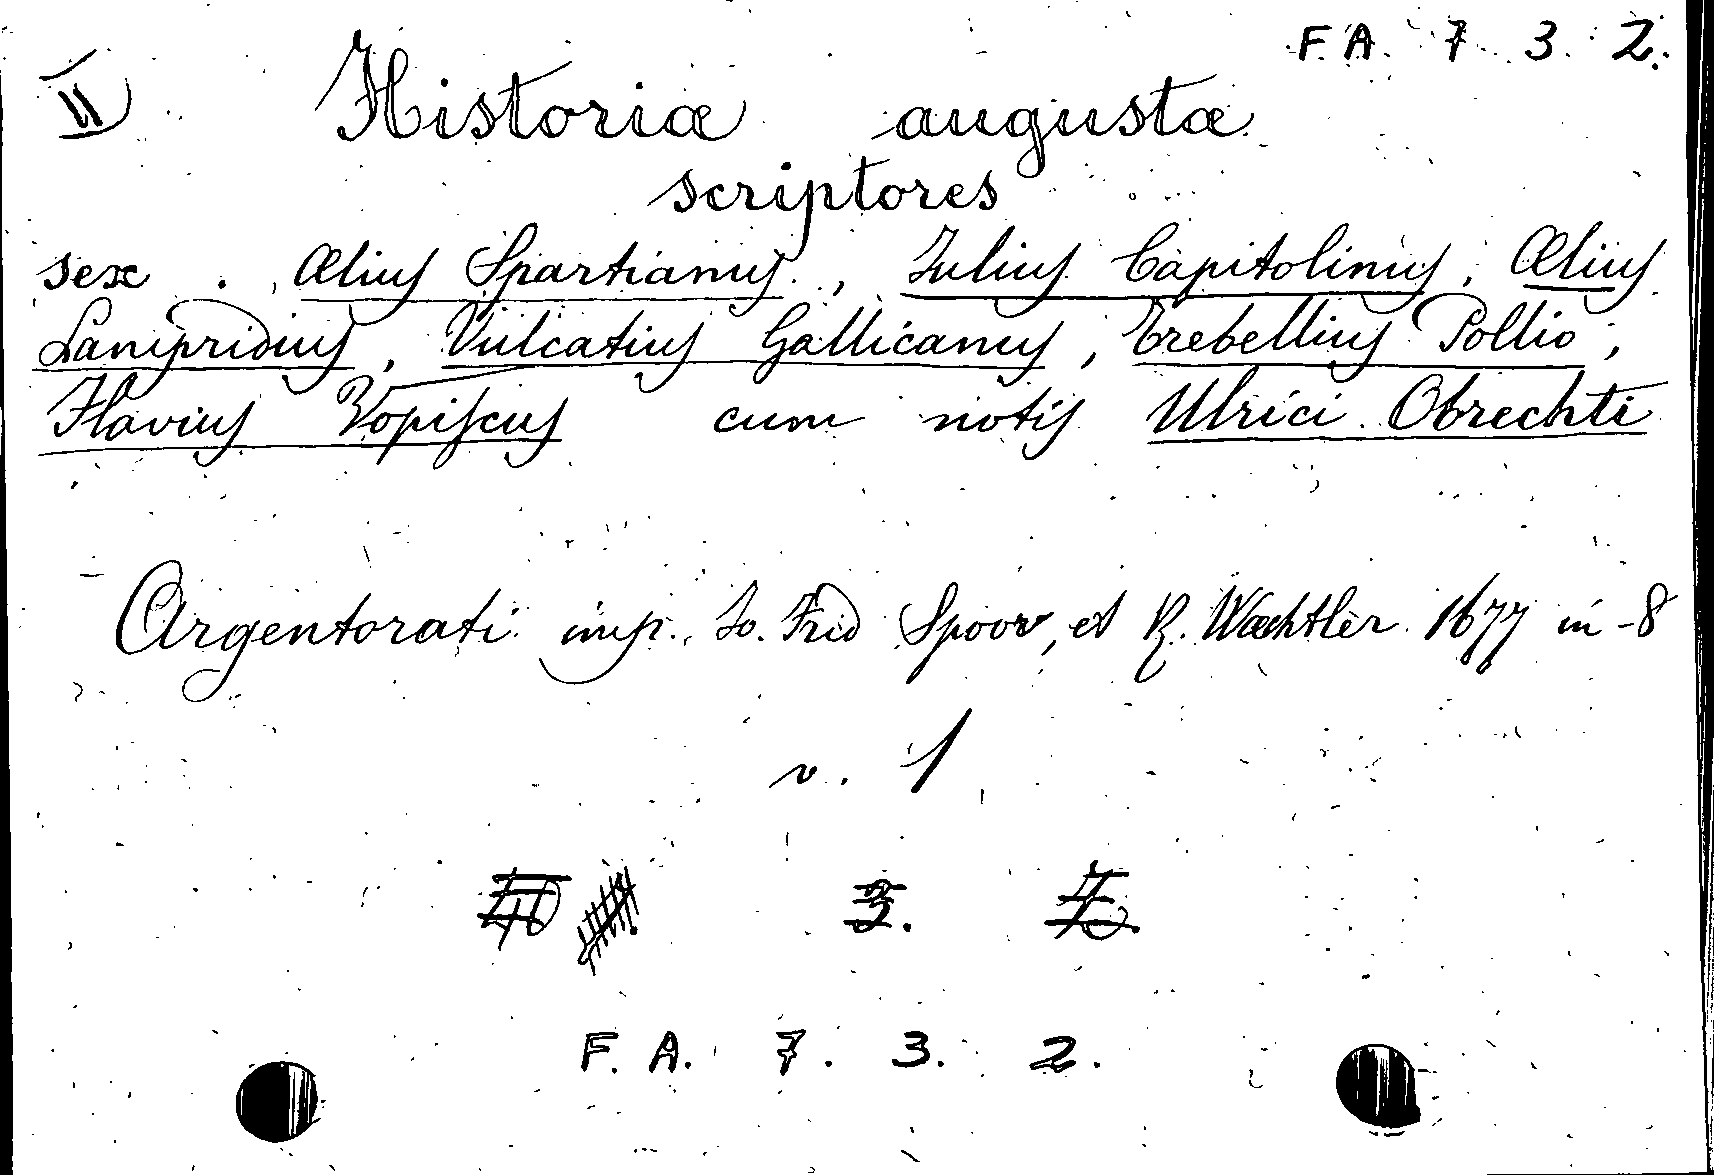 F. A. 7. 3. 2.
II)
Historiæ augustæ
scriptores
sex. Ælius Spartianus, Julius Capitolinus, Ælius
Lampridius, Vulcatius Gallicanus, Trebellius Pollio,
Flavius Vopiscus cum notis Ulrici Obrechti
Argentorati imp. Jo. Frid Spoor, et R. Wæchtler 1677 in-8
v. 1
3.
F. A. 7. 3. 2.